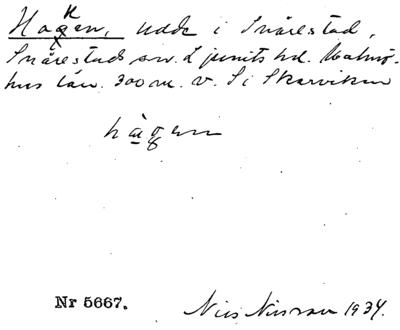 Haken, udde i Snårestad,
Snårestads sn. Ljunits hd. Malmö-
hus län. 300 m. v. S i Skarviken
hàgen
Nr 5667. Nils Nilsson 1934.